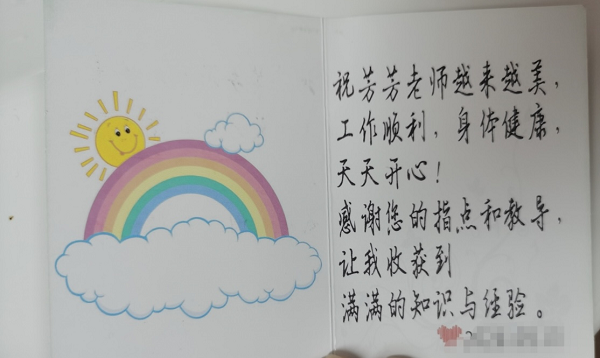 祝芳芳老师越来越美，
工作顺利，身体健康，
天天开心！
感谢您的指点和教导，
让我收获到
满满的知识与经验。